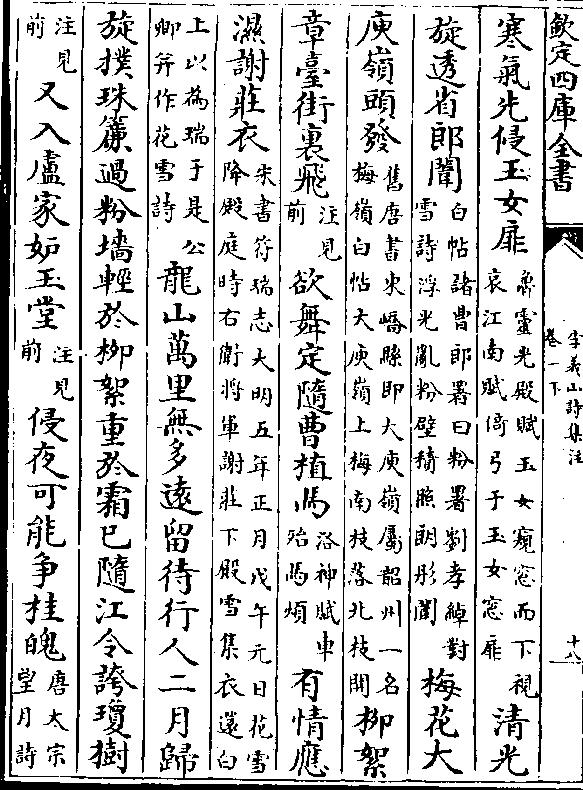 欽定四庫全書
李義山詩集注
卷一下
十八
寒氣先侵玉女扉魯靈光殿賦玉女窺窓而下視
哀江南賦倚弓于玉女窓扉清光
旋透省郎闈白帖諸曹郎署曰粉署劉孝綽對
雪詩浮光亂粉壁積照朗彤闈梅花大
庾嶺頭發舊唐書東嶠縣即大庾嶺屬韶州一名
梅嶺白帖大庾嶺上梅南枝落北枝開柳絮
章臺街裏飛注見
前欲舞定隨曹植馬洛神賦車
殆馬煩有情應
濕謝莊衣宋書符瑞志大明五年正月戊午元日花雪
降殿庭時右衛將軍謝莊下殿雪集衣還白
上以為瑞于是公
卿并作花雪詩龍山萬里無多遠留待行人二月歸
旋撲珠簾過粉墻輕於柳絮重於霜已隨江令誇瓊樹
注見
前又入盧家妬玉堂注見
前侵夜可能爭桂魄唐太宗
望月詩